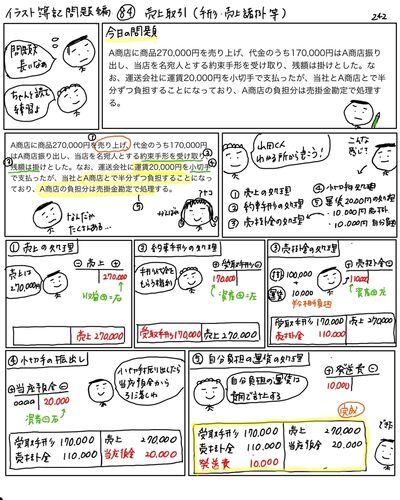 イラスト簿記 問題編 84 売上取引(手形・売上諸掛等)
242
問題文
長いなぁ
ちゃんと読む
練習よ
今日の問題
A商店に商品270,000円を売り上げ、代金のうち170,000円はA商店振り
出し、当店を名宛人とする約束手形を受け取り、残額は掛けとした。な
お、運送会社に運賃20,000円を小切手で支払ったが、当社とA商店とで半
分ずつ負担することになっており、A商店の負担分は売掛金勘定で処理す
る。
①
A商店に商品270,000円を売り上げ、代金のうち170,000円
はA商店振り出し、当店を名宛人とする約束手形を受け取り、
残額は掛けとした。なお、運送会社に運賃20,000円を小切手
で支払ったが、当社とA商店とで半分ずつ負担することになっ
ており、A商店の負担分は売掛金勘定で処理する。
② ③ ④
⑤
なんだか
たくさんある…
山田くん
わかる所からもう!
こんな
感じ?
① 売上の処理
② 約束手形の処理
③ 売掛金の処理
④ 小切手の処理
⑤ 運賃20,000円の処理
・10,000円 売掛
・10,000円 自分負担
① 売上の処理
売上は
270,000円
⊖ 売上 ⊕
270,000
収益⊕=右
売上 270,000
② 約束手形の処理
⊕ 受取手形 ⊖
170,000
資産⊕=左
受取手形 170,000
売上 270,000
③ 売掛金の処理
⊕ 売掛金 ⊖
110,000
100,000
+
10,000
資産⊕左
受取手形 170,000
売掛金 110,000
売上 270,000
④ 小切手の振出し
⊕ 当座預金 ⊖
20,000
資産⊖右
小切手振り出したら
当座預金から
引き落しね
受取手形 170,000
売上 270,000
売掛金 110,000
当座預金 20,000
⑤ 自分負担の運賃の処理
自分負担の運賃は
費用でまとめよう
⊕ 発送費 ⊖
10,000
完成
受取手形 170,000
売上 270,000
売掛金 110,000
当座預金 20,000
発送費 10,000